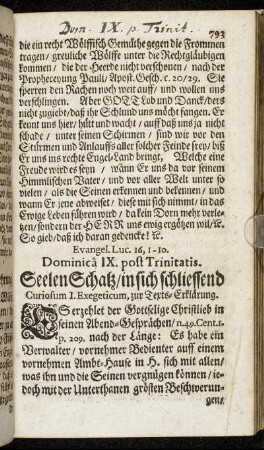 Dom. IX. p. Trinit.
793
die ein recht Wölffisch Gemüthe gegen die Frommen
tragen / greuliche Wölffe unter die Rechtgläubigen
kommen / die der Heerde nicht verschonen / nach der
Propheceyung Pauli / Apost. Gesch. c. 20/29. Sie
sperren den Rachen noch weit auff / und wollen uns
verschlingen. Aber GOTT Lob und Danck / ders
nicht zugiebt / daß ihr Schlund uns möcht fangen. Er
kennt uns hier / hält und wacht / auff daß uns ja nicht
schade / unter seinen Schirmen / sind wir vor den
Stürmen und Anlauffs aller solcher Feinde frey / biß
Er uns ins rechte Engel-Land bringt, Welche eine
Freude wird es seyn / wenn Er uns da vor seinem
Himmlischen Vater / und vor aller Welt unter so
vielen / als die Seinen erkennen und bekennen / und
wann Er jene abweiset / diese mit sich nimmt / in das
Ewige Leben führen wird / da kein Dorn mehr verle-
tzen / sondern der HERR uns ewig ergötzen wil / &c.
So gieb / daß ich daran gedencke! &c.
Evangel. Luc. 16, 1-10.
Dominicâ IX. post Trinitatis.
Seelen Schatz / in sich schliessend
Curiosum I. Exegeticum, zur Texts-Erklärung.
ES erzehlet der Gottselige Christlieb in
seinen Abend-Gesprächen / n. 49. Cent. 1.
p. 209. nach der Länge: Es habe ein
Verwalter / vornehmer Bedienter auff einem
vornehmen Ambt-Hause in H. sich mit allen /
was ihn und die Seinen vergnügen können / je-
doch mit der Unterthanen grösten Beschwerun-
gen /